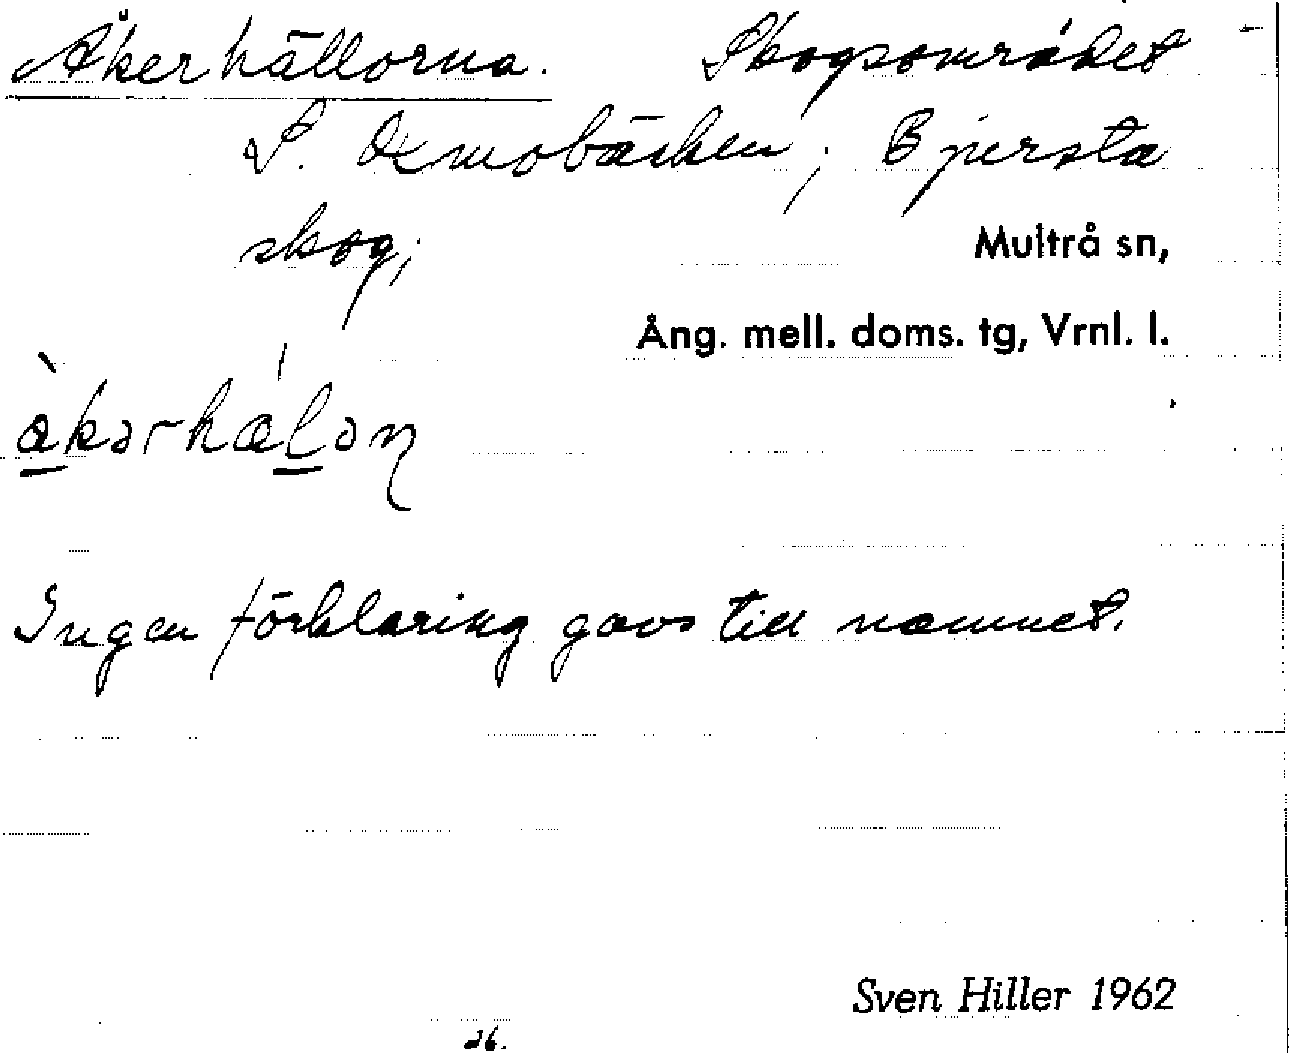 Åkerhällorna. Skogsområdet
S. Oxmobäcken, Bjersta
skog;
Multrå sn,
Ång. mell. doms. tg, Vrnl. l.
Ingen förklaring gavs till namnet.
Sven Hiller 1962
26.